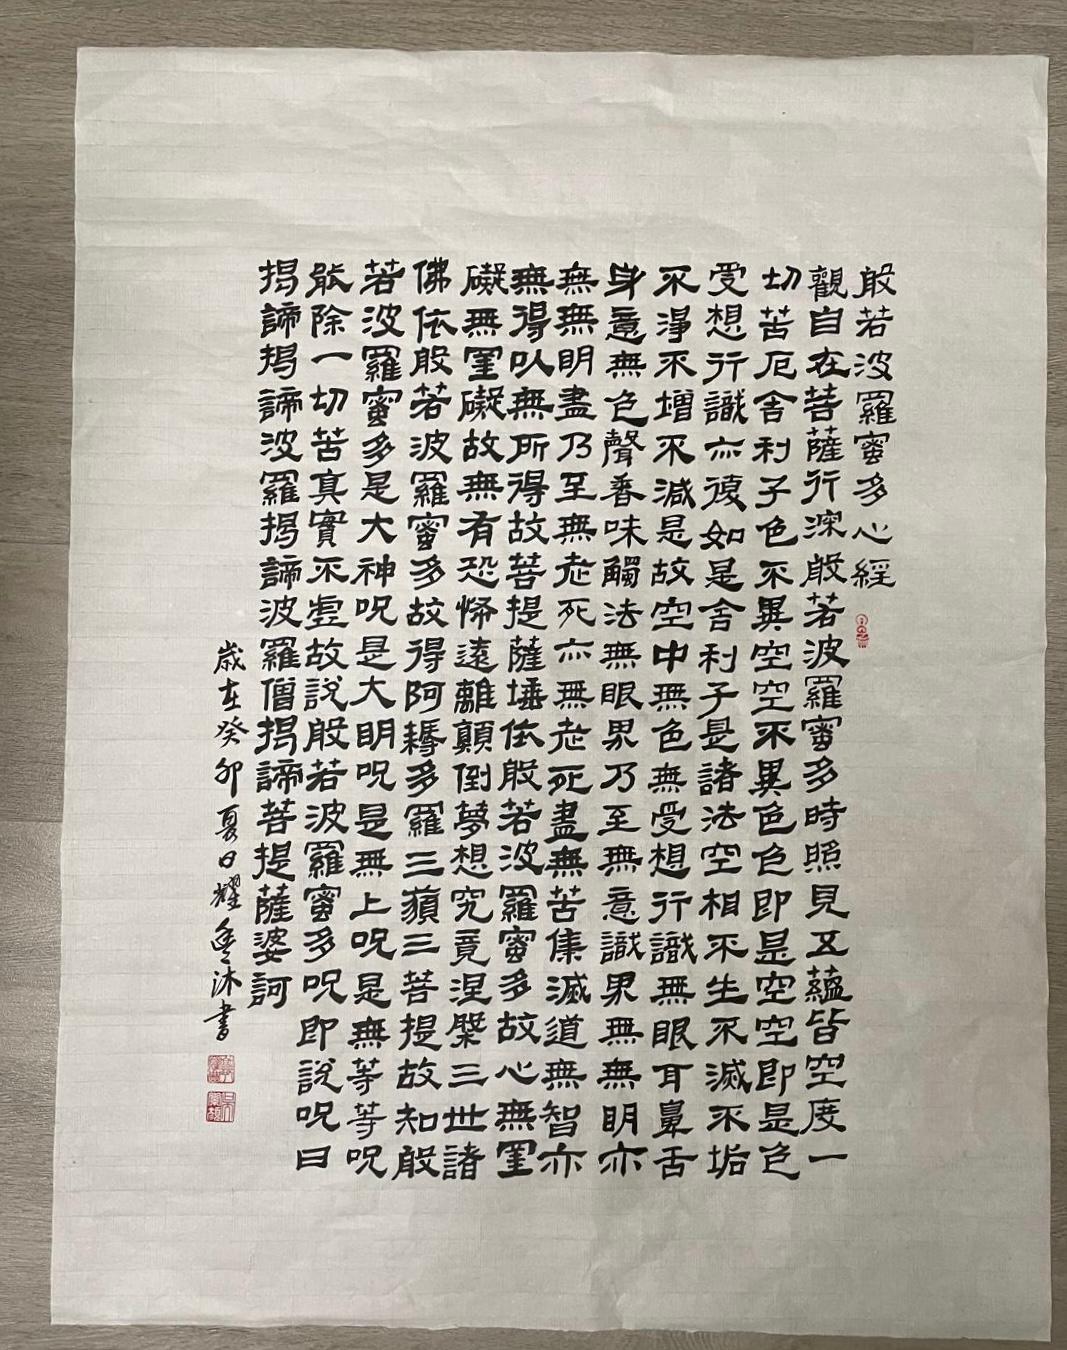 般若波羅蜜多心經
觀自在菩薩行深般若波羅蜜多時照見五蘊皆空度一
切苦厄舍利子色不異空空不異色色即是空空即是色
受想行識亦復如是舍利子是諸法空相不生不滅不垢
不淨不增不減是故空中無色無受想行識無眼耳鼻舌
身意無色聲香味觸法無眼界乃至無意識界無無明亦
無無明盡乃至無老死亦無老死盡無苦集滅道無智亦
無得以無所得故菩提薩埵依般若波羅蜜多故心無罣
礙無罣礙故無有恐怖遠離顛倒夢想究竟涅槃三世諸
佛依般若波羅蜜多故得阿耨多羅三藐三菩提故知般
若波羅蜜多是大神呪是大明呪是無上呪是無等等呪
能除一切苦真實不虛故說般若波羅蜜多呪即說呪曰
揭諦揭諦波羅揭諦波羅僧揭諦菩提薩婆訶
歲在癸卯夏日耀沐書